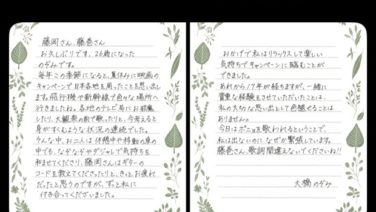 藤岡さん、藤巻さん
お久しぶりです、26歳になった
のぞみです。
毎年この季節になると、夏休みに映画の
キャンペーンで日本各地を周ったことを思い出し
ます。飛行機や新幹線で色々な場所へ
行きましたね。各地のテレビ局にお邪魔
したり、大観衆の前で歌ったりと、今考えると
身がすくむような状況の連続でした。
そんな中、お二人は休憩中や移動の車の
中でも、なぞなぞやダジャレで気持ちを
和ませてくださり、藤岡さんはギターの
コードを教えてくださったりと、きっと、お疲れ
だったと思うのですが、ずっと私に
付き合ってくださいました。
おかげで私はリラックスして楽しい
気持ちでキャンペーンに臨むことが
できました。
あれから17年が経ちますが、一緒に
貴重な経験をさせていただいたことは、
私の大切な思い出として色褪せることは
ありません。
今日はポニョを歌われるということで、
私は出ないのになぜか緊張しています。
藤巻さん、歌詞間違えないでくださいね!!
大橋のぞみ